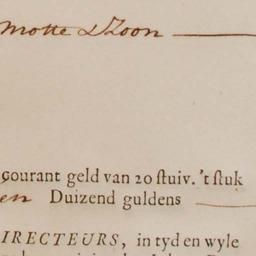 Motte D'Zoon
courant geld van 20 ſtuiv. 't ſtuk
en Duizend guldens
IRECTEURS, in tyd en wyle